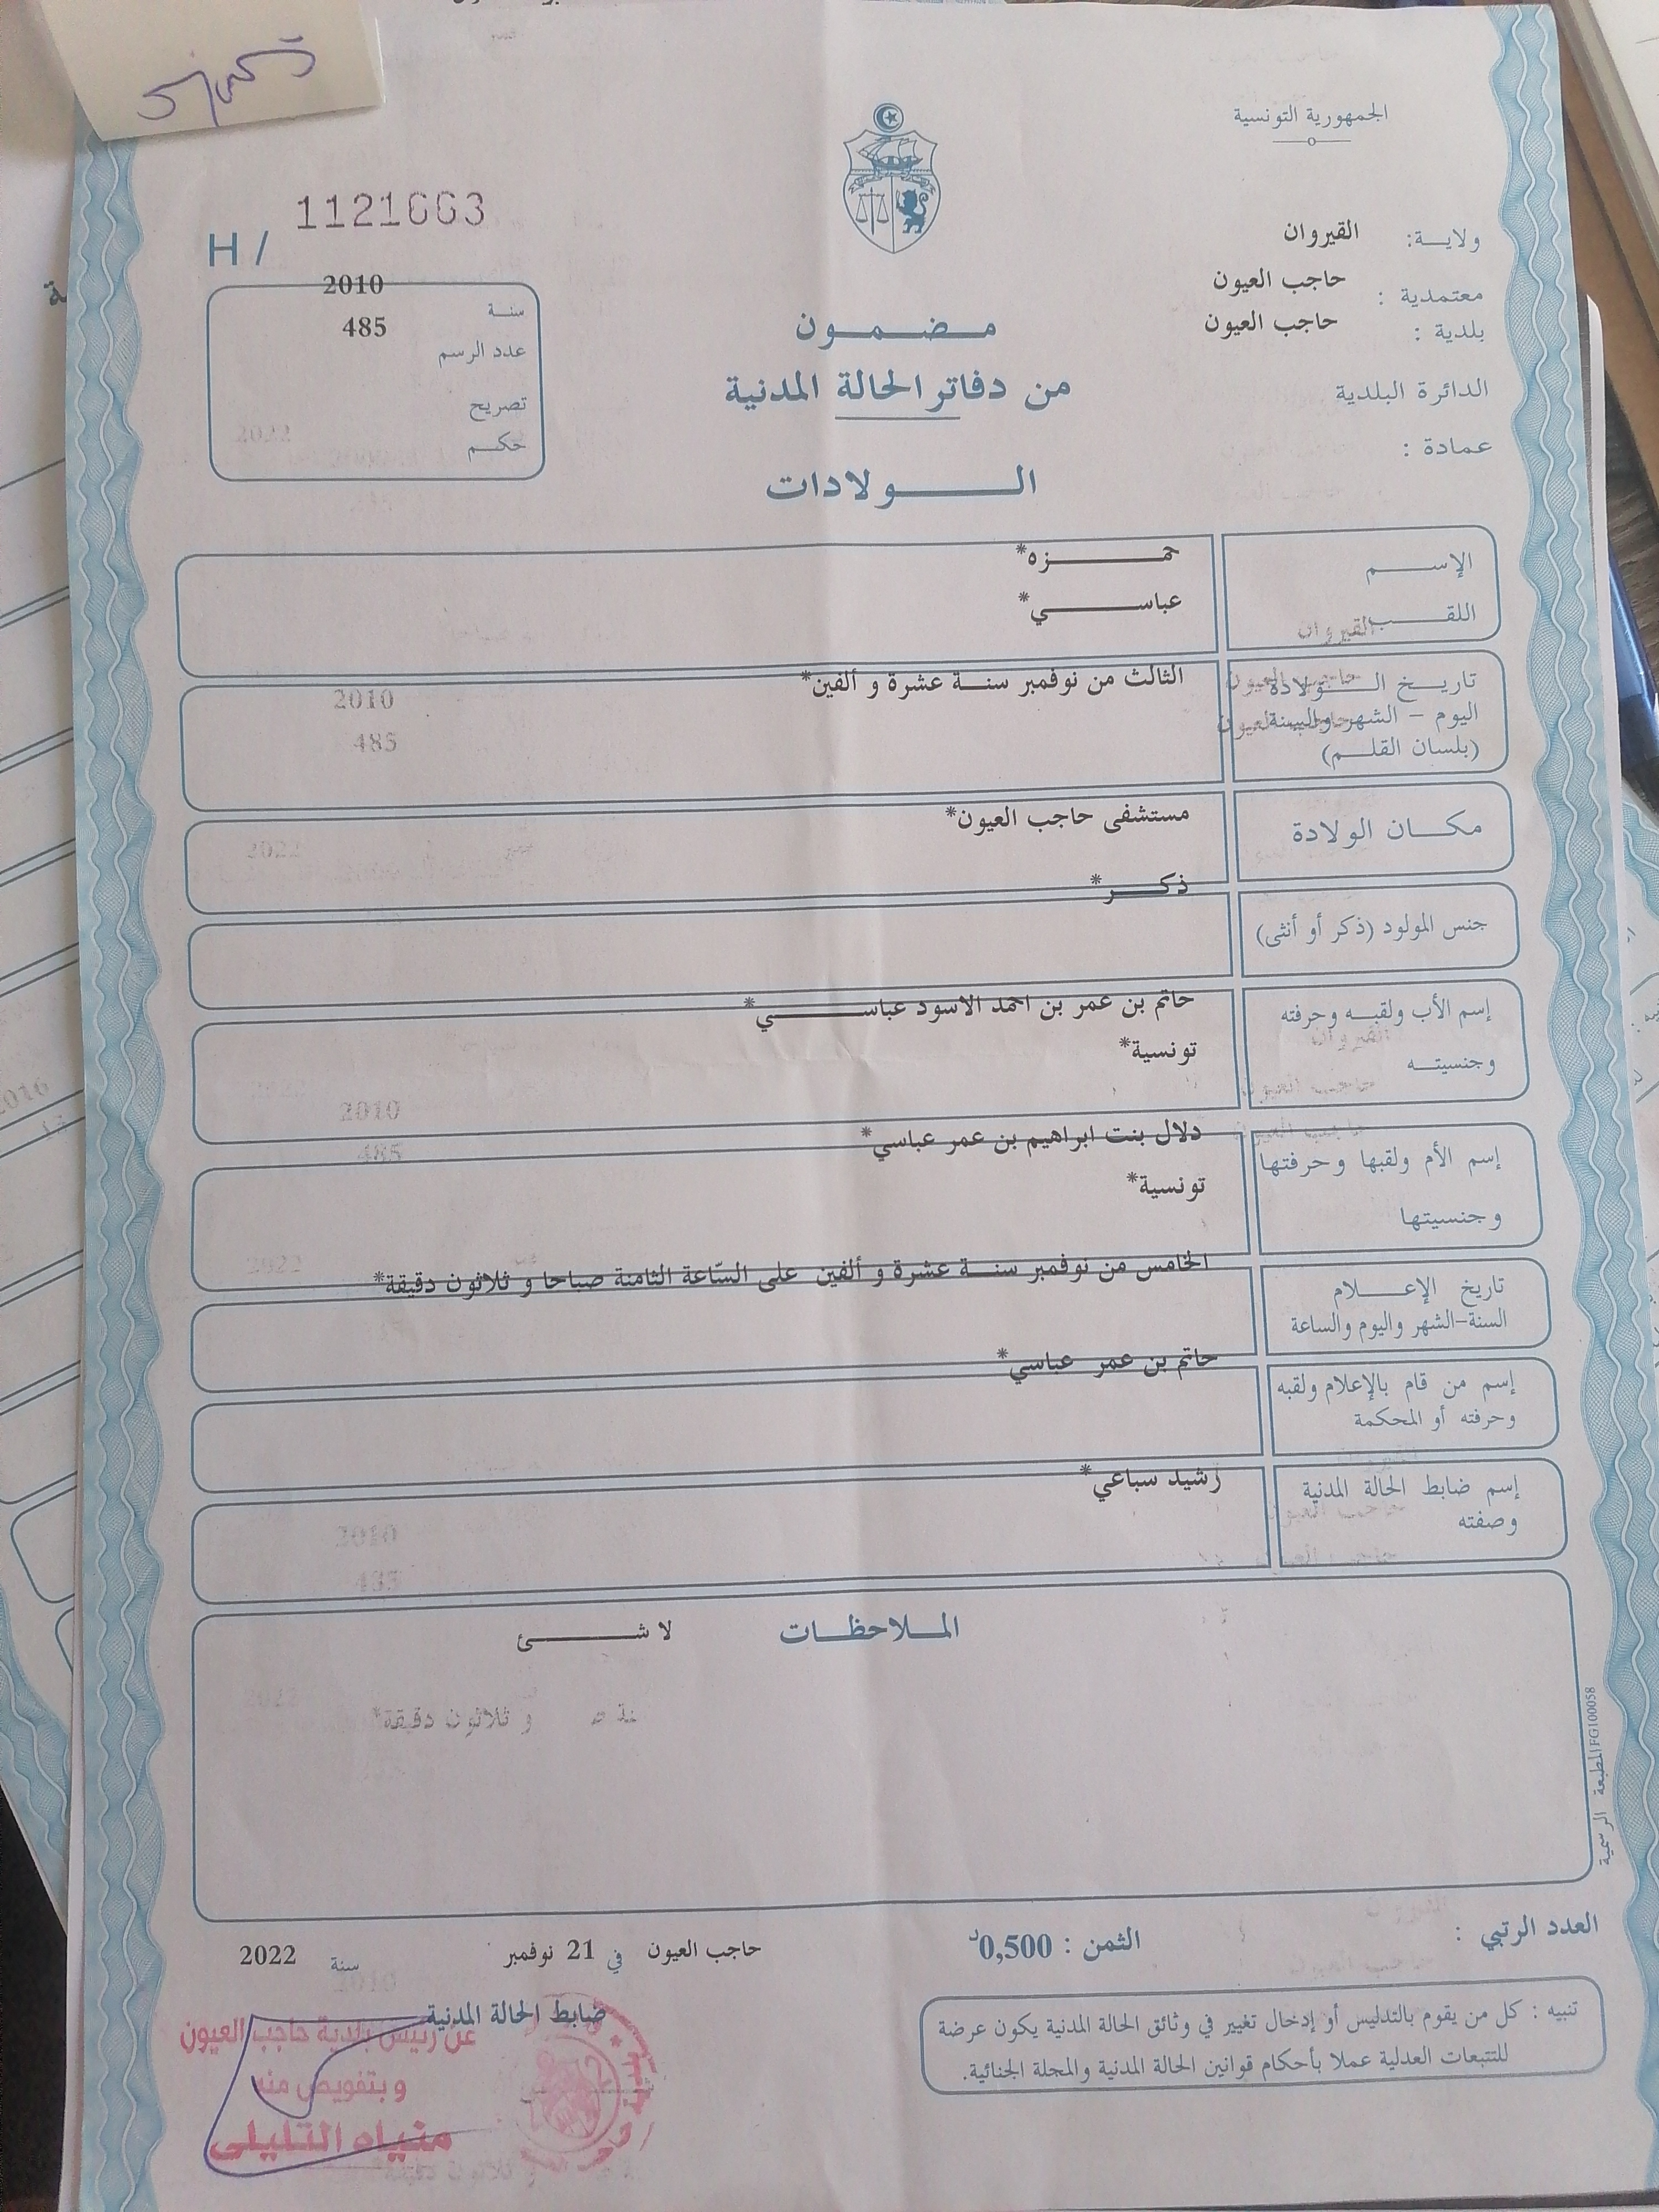 الجمهورية التونسية
H / 1121663
ولاية: القيروان
معتمدية : حاجب العيون
بلدية : حاجب العيون
الدائرة البلدية
عمادة :
سنة 2010
عدد الرسم 485
تصريح
حكم
مضمون
من دفاتر الحالة المدنية
الولادات
الإسم حمزه*
اللقب عباسي*
تاريخ الولادة الثالث من نوفمبر سنة عشرة و ألفين*
اليوم - الشهر والسنة
(بلسان القلم)
مكان الولادة مستشفى حاجب العيون*
جنس المولود (ذكر أو أنثى) ذكر*
إسم الأب ولقبه وحرفته حاتم بن عمر بن احمد الاسود عباسي*
وجنسيته تونسية*
إسم الأم ولقبها وحرفتها دلال بنت ابراهيم بن عمر عباسي*
وجنسيتها تونسية*
تاريخ الإعلام الخامس من نوفمبر سنة عشرة و ألفين على السّاعة الثامنة صباحا و ثلاثون دقيقة*
السنة-الشهر واليوم والساعة
إسم من قام بالإعلام ولقبه حاتم بن عمر عباسي*
وحرفته أو المحكمة
إسم ضابط الحالة المدنية رشيد سباعي*
وصفته
الملاحظات لا شئ
المطبعة الرسمية FG100058
العدد الرتبي :
الثمن : 0,500د
حاجب العيون في 21 نوفمبر سنة 2022
ضابط الحالة المدنية
عن رئيس بلدية حاجب العيون
وبتفويض منه
التليلي
تنبيه : كل من يقوم بالتدليس أو إدخال تغيير في وثائق الحالة المدنية يكون عرضة
للتتبعات العدلية عملا بأحكام قوانين الحالة المدنية والمجلة الجنائية.